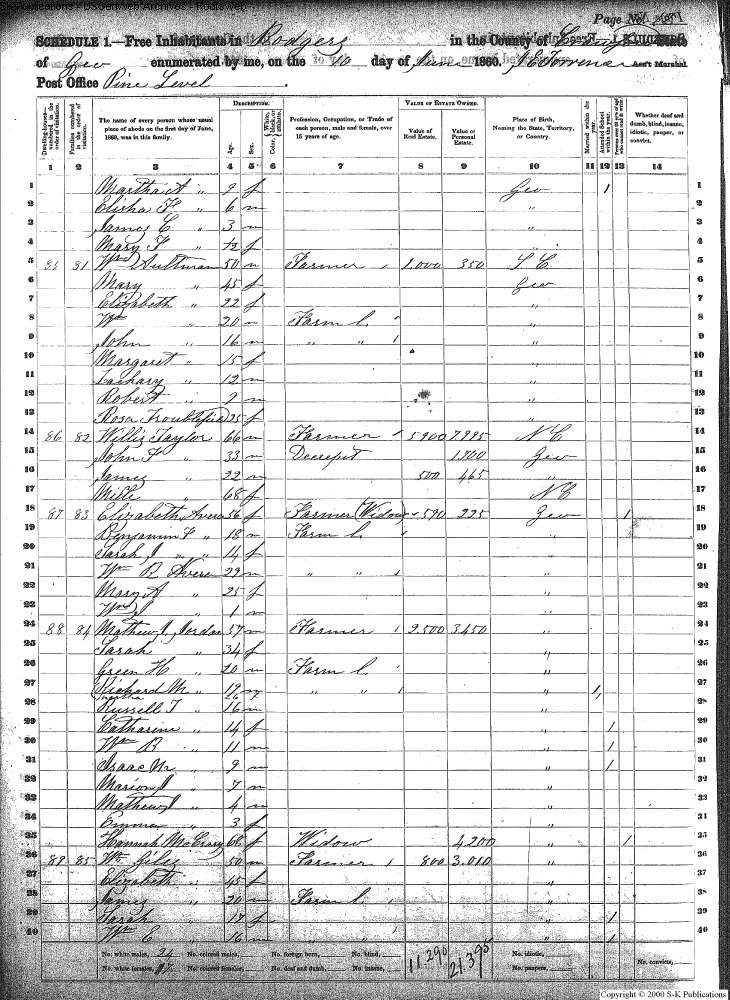 S-K Publications - USGenWeb Archives - Rod's web
Page No.
SCHEDULE 1.—Free Inhabitants in Rodgers in the County of State
of Geo enumerated by me, on the day of June 1860. Ass't Marshal
Post Office Pine Level
Dwelling-houses—numbered in the order of visitation.
Families numbered in the order of visitation.
The name of every person whose usual place of abode on the first day of June, 1860, was in this family.
DESCRIPTION.
Age.
Sex.
Color, White, black, or mulatto.
Profession, Occupation, or Trade of each person, male and female, over 15 years of age.
VALUE OF ESTATE OWNED.
Value of Real Estate.
Value of Personal Estate.
Place of Birth, Naming the State, Territory, or Country.
Married within the year.
Attended School within the year.
Whether deaf and dumb, blind, insane, idiotic, pauper, or convict.
1 2 3 4 5 6 7 8 9 10 11 12 13 14
1 Martha A " 9 f Geo 1 1
2 Elisha F " 6 m " 2
3 James C " 3 m " 3
4 Mary F " f " 4
5 81 Wm Aultman 50 m Farmer 1,000 350 S C 5
6 Mary " 45 f Geo 6
7 Elizabeth " 22 f " 7
8 Wm " 20 m Farm L. " 8
9 John " 16 m " " " 9
10 Margaret " 15 f " 10
11 Zachary " 12 m " 11
12 Robert " 9 m " 12
13 Rosa Troublefield 25 f " 13
14 86 82 Willis Taylor 66 m Farmer 5900 7,995 N C 14
15 John F " 33 m Decrepit Geo 15
16 James " 22 m 500 465 " 16
17 Mille " 68 f N C 17
18 87 83 Elizabeth Avera 56 f Farmer (Widow) 590 225 Geo 1 18
19 Benjamin F " 18 m Farm L. " 19
20 Sarah J " " 14 f 20
21 Wm B Avera 29 m " " " 21
22 Mary A " 25 f " 22
23 Wm J " 1 m 23
24 88 84 Mathew J Jordan 57 m Farmer 2,500 3450 " 24
25 Sarah " 34 f " 25
26 Green H " 20 m Farm L. " 26
27 Richard M " 19 m " " " 1 27
28 Russell T " 16 m 28
29 Catharine " 14 f " 1 29
30 Wm B " 11 m " 1 30
31 Isaac M " 9 m " 1 31
32 Marion J " 7 m " 32
33 Mathew J " 4 m " 33
34 Emma " 3 f " 34
35 Hannah McCrary 68 f Widow 4,200 " 1 35
36 89 85 Wm Giles 50 m Farmer 800 3.010 " 36
37 Elizabeth " 45 f " 37
38 James " 20 m Farm L. " 38
39 Sarah " 17 f " 1 39
40 Wm E " 16 m " " " 1 40
No. white males, 24 No. colored males, No. foreign born, No. blind, 11.290 21.395 No. idiotic,
No. white females, 17 No. colored females, No. deaf and dumb, No. insane, No. paupers, No. convicts,
Copyright © 2000 S-K Publications